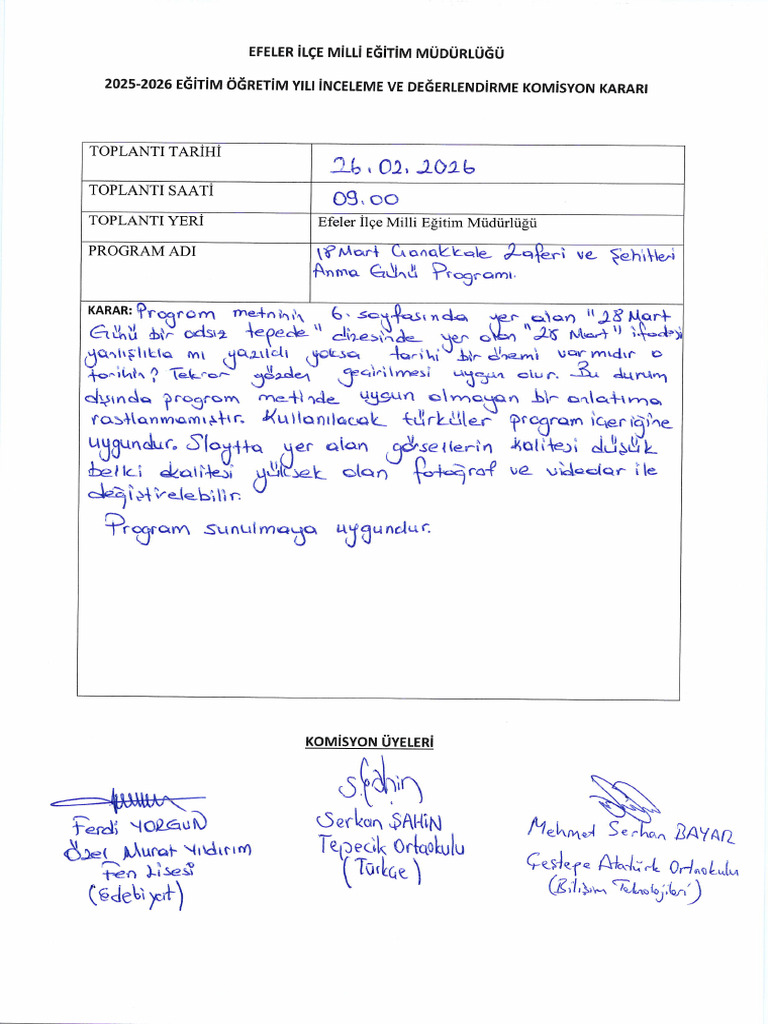 EFELER İLÇE MİLLİ EĞİTİM MÜDÜRLÜĞÜ
2025-2026 EĞİTİM ÖĞRETİM YILI İNCELEME VE DEĞERLENDİRME KOMİSYON KARARI
TOPLANTI TARİHİ 26.02.2026
TOPLANTI SAATİ 09.00
TOPLANTI YERİ Efeler İlçe Milli Eğitim Müdürlüğü
PROGRAM ADI 18 Mart Çanakkale Zaferi ve Şehitleri
Anma Günü Programı.
KARAR: Program metninin 6. sayfasında yer alan "28 Mart
Günü bir adsız tepede" dizesinde yer alan "28 Mart" ifadesi
yanlışlıkla mı yazıldı yoksa tarihi bir önemi varmıdır o
tarihin? Tekrar gözden geçirilmesi uygun olur. Bu durum
dışında program metinde uygun olmayan bir anlatıma
rastlanmamıştır. Kullanılacak türküler program içeriğine
uygundur. Slaytta yer alan görsellerin kalitesi düşük
belki kalitesi yüksek olan fotoğraf ve videolar ile
değiştirelebilir.
Program sunulmaya uygundur.
KOMİSYON ÜYELERİ
S.Şahin
Ferdi YORGUN
Özel Murat Yıldırım
Fen Lisesi
(Edebiyat)
Serkan ŞAHİN
Tepecik Ortaokulu
(Türkçe)
Mehmet Serhan BAYAR
Çeştepe Atatürk Ortaokulu
(Bilişim Teknolojileri)